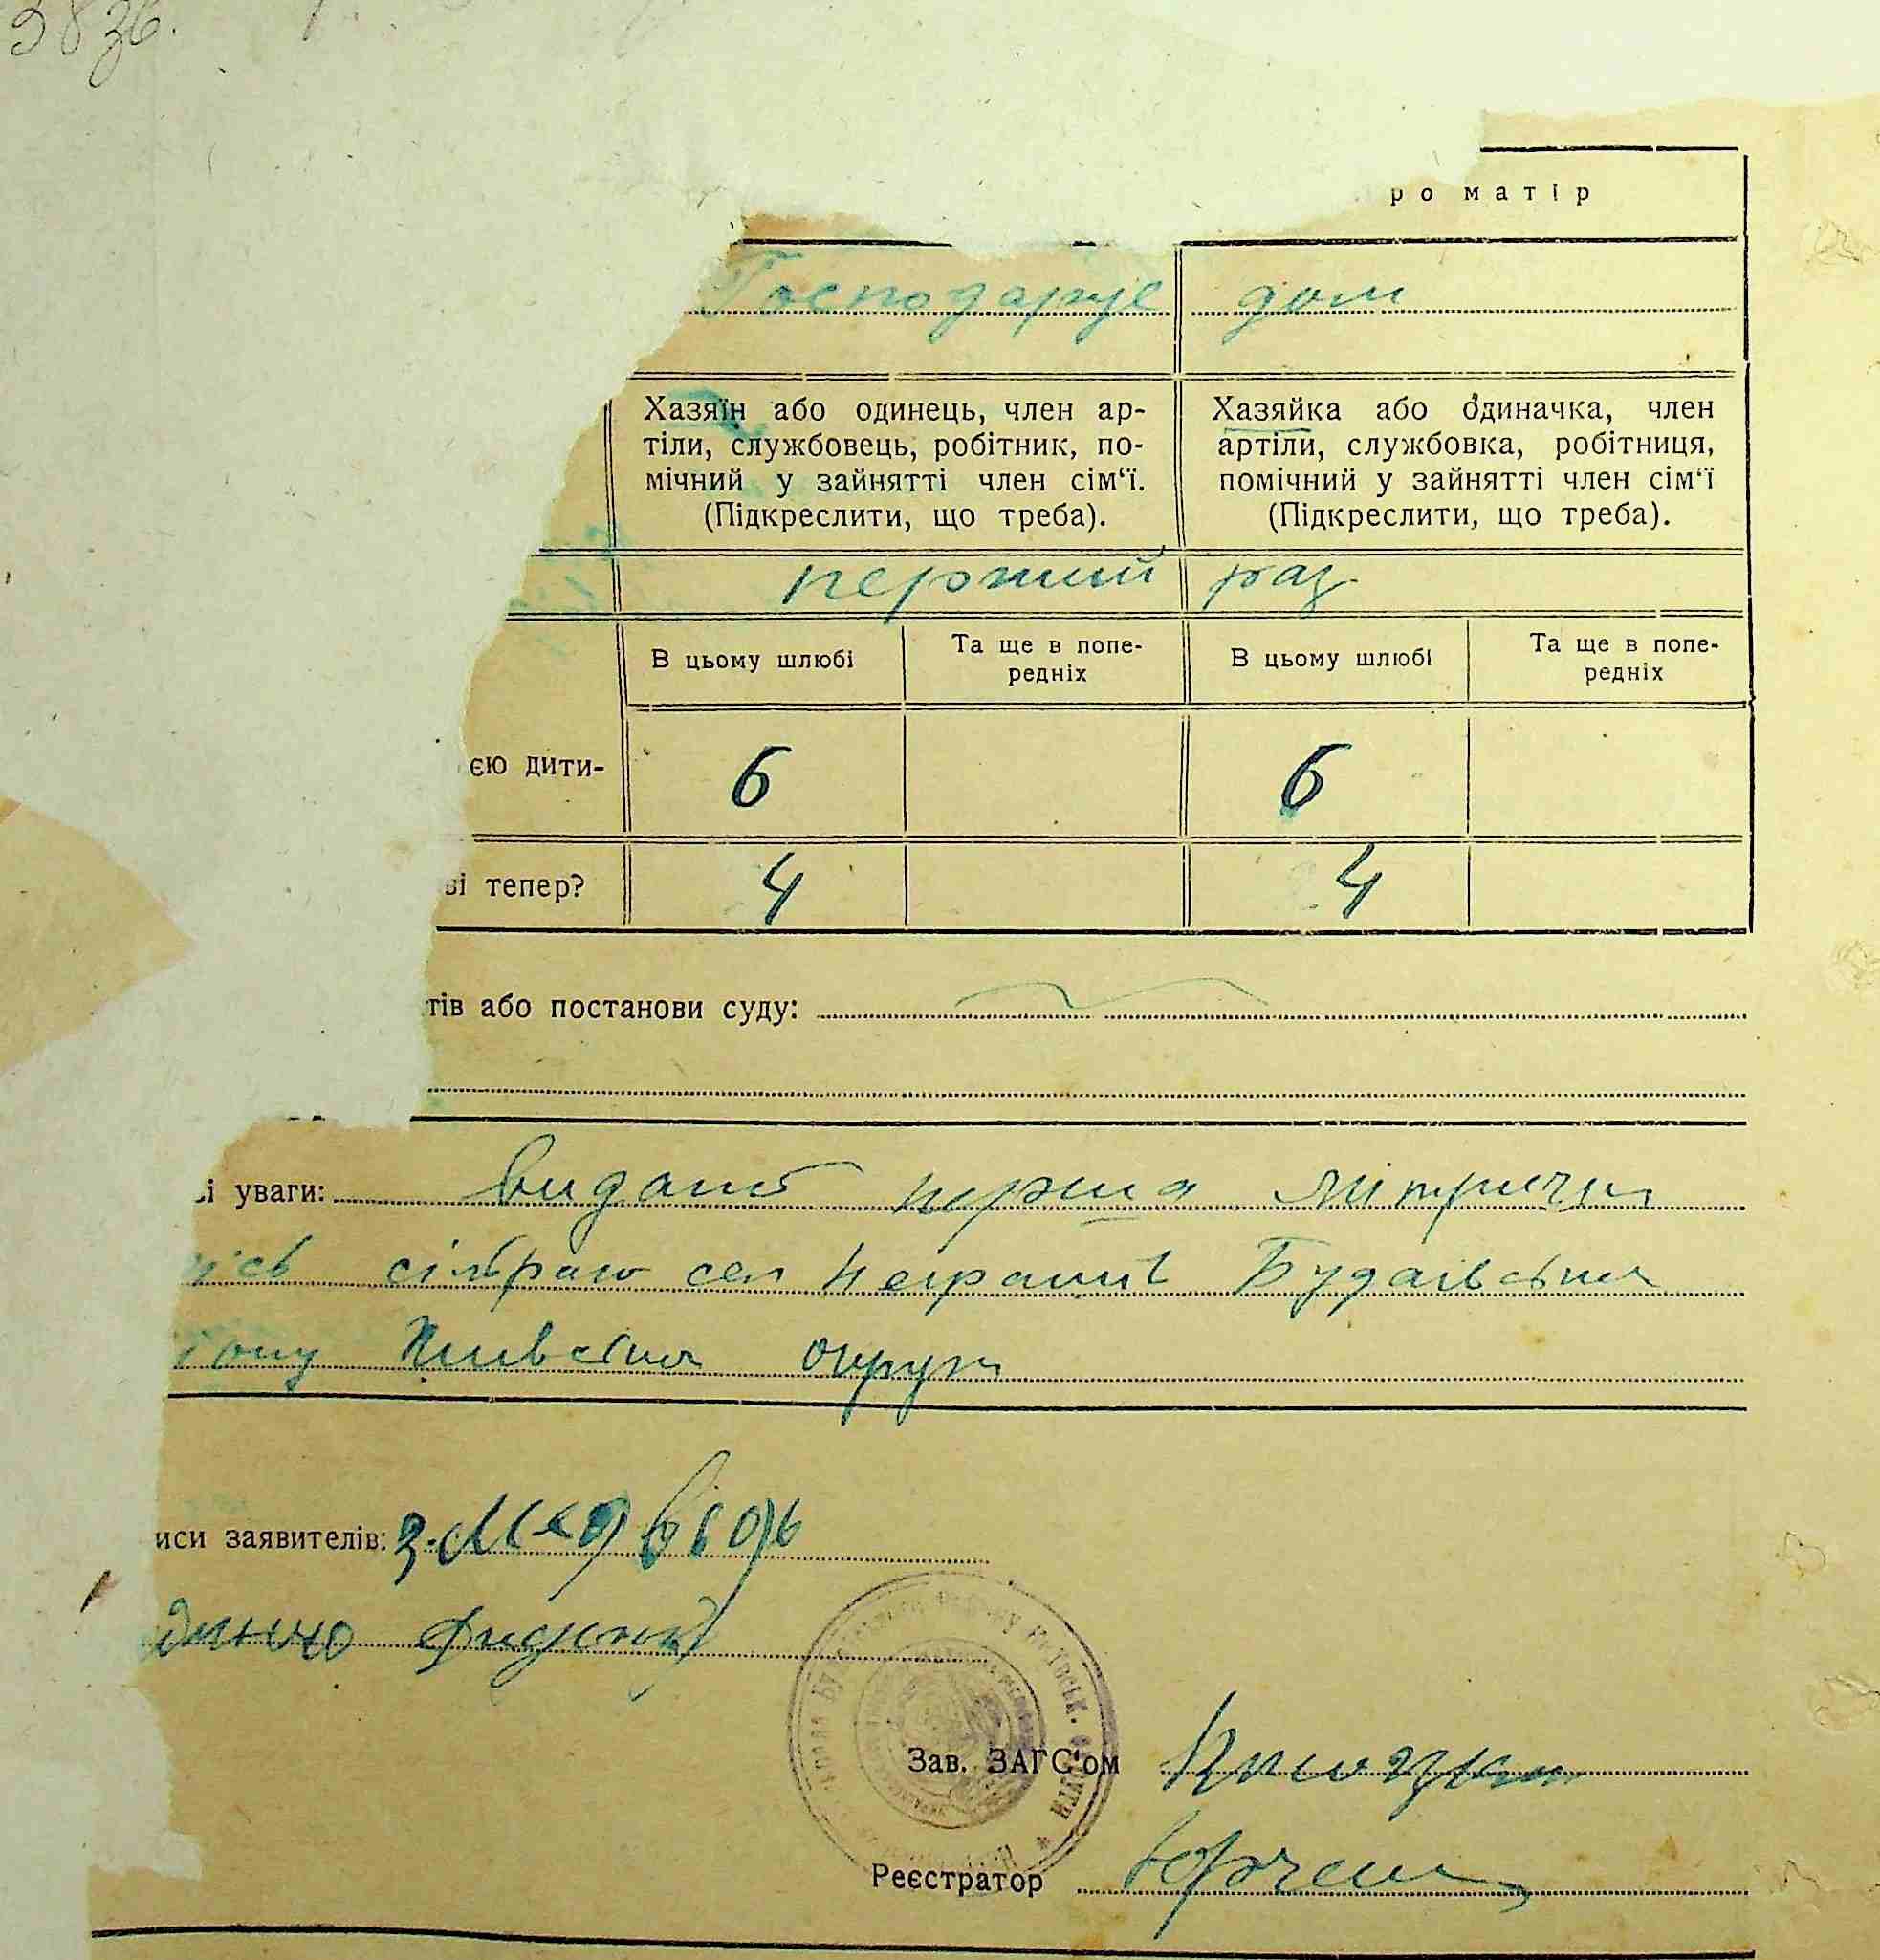 383б.
ро матір
Господарує дом
Хазяїн або одинець, член ар-
тіли, службовець, робітник, по-
мічний у зайнятті член сім‘ї.
(Підкреслити, що треба).
Хазяйка або одиначка, член
артіли, службовка, робітниця,
помічний у зайнятті член сім‘ї
(Підкреслити, що треба).
перший раз
В цьому шлюбі
Та ще в попе-
редніх
В цьому шлюбі
Та ще в попе-
редніх
єю дити-
6
6
ві тепер?
4
4
тів або постанови суду:
і уваги: видана перша
сільрадою сел Неграші Будаївськ
ону Київськ округи
иси заявителів: З. Медвідь
Зав. ЗАГС‘ом
Реєстратор